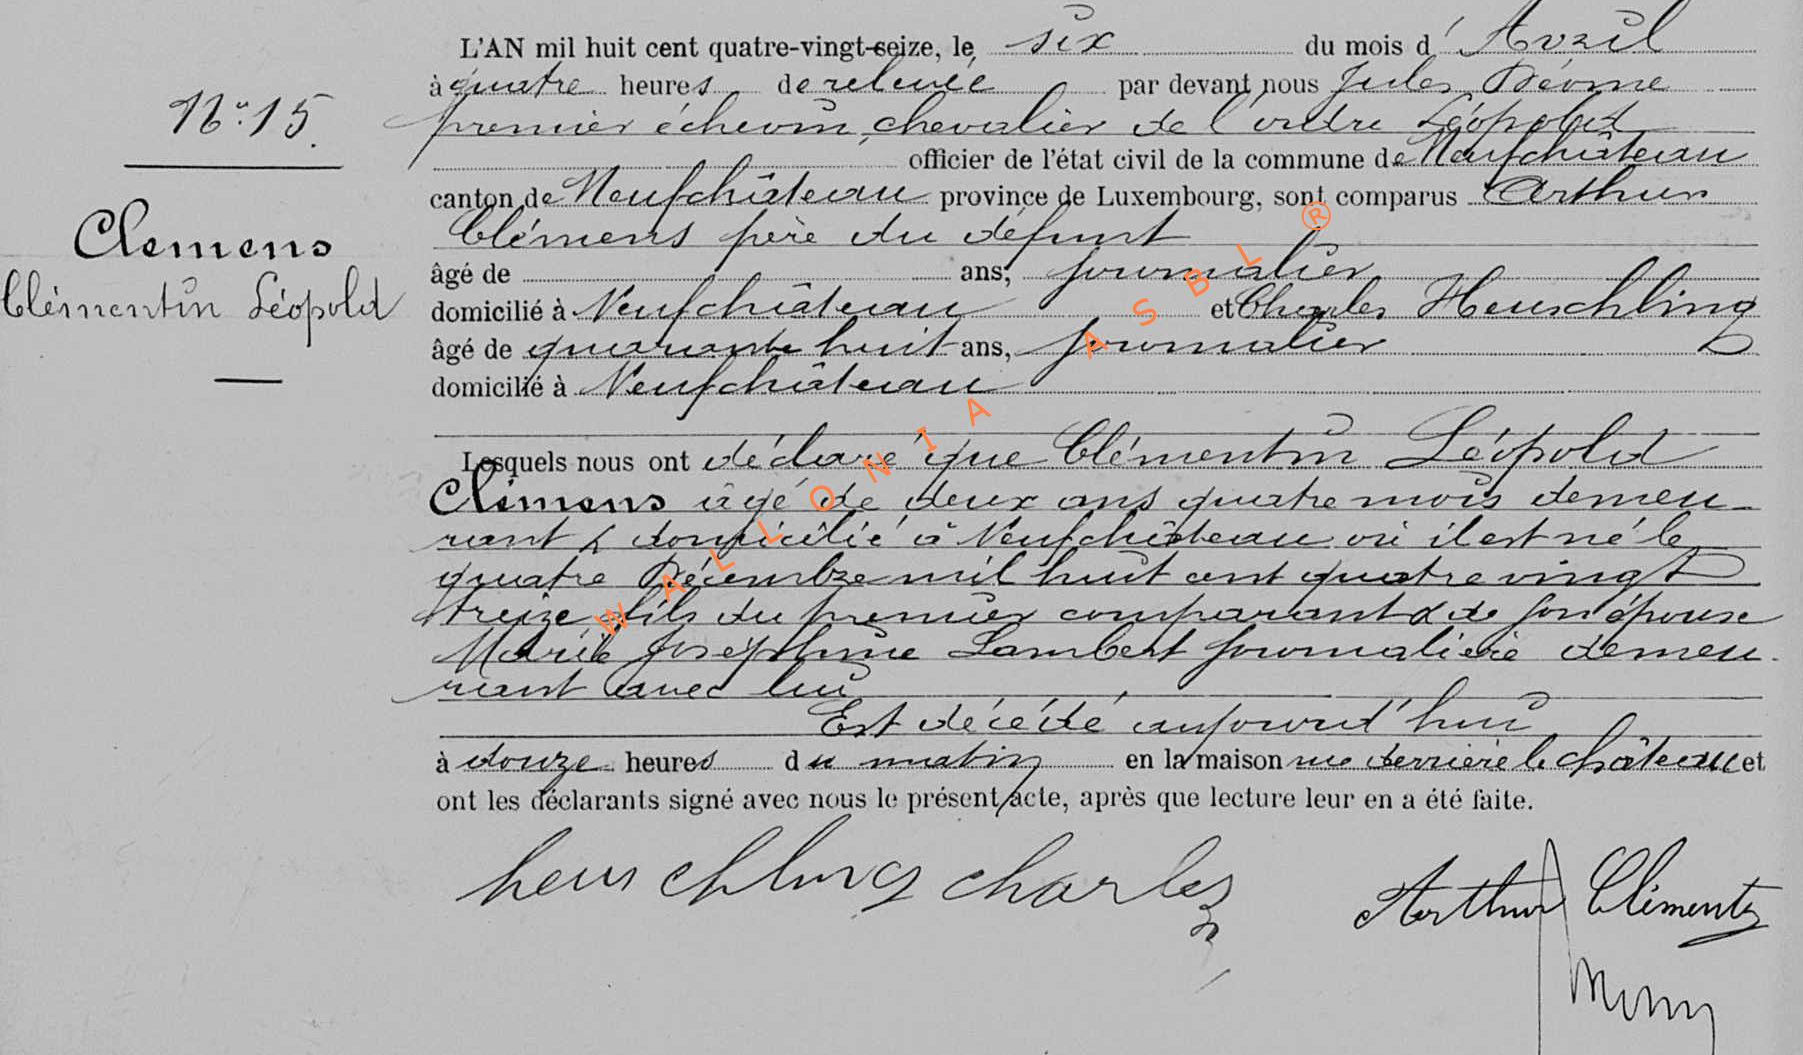 L'AN mil huit cent quatre-vingt-seize, le six du mois d' Avril
à quatre heures de relevée par devant nous Jules
N° 15.
premier échevin, chevalier de l'ordre Léopold
officier de l'état civil de la commune de Neufchâteau
canton de Neufchâteau province de Luxembourg, sont comparus Arthur
Clemens
Clémentin Léopold
Clémens père du défunt
âgé de ans, journalier
domicilié à Neufchâteau et Charles Heuschling
âgé de quarante huit ans, journalier
domicilié à Neufchâteau
Lesquels nous ont déclaré que Clémentin Léopold
Clémens âgé de deux ans quatre mois demeu-
rant & domicilié à Neufchâteau où il est né le
quatre Décembre mil huit cent quatre vingt
treize fils du premier comparant & de son épouse
Marie Joséphine Lambert journalière demeu-
rant avec lui
Est décédé aujourd'hui
à douze heures du matin en la maison rue derrière le château et
ont les déclarants signé avec nous le présent acte, après que lecture leur en a été faite.
heuschling charles
Arthur Clements
WALLONIA ASBL ®